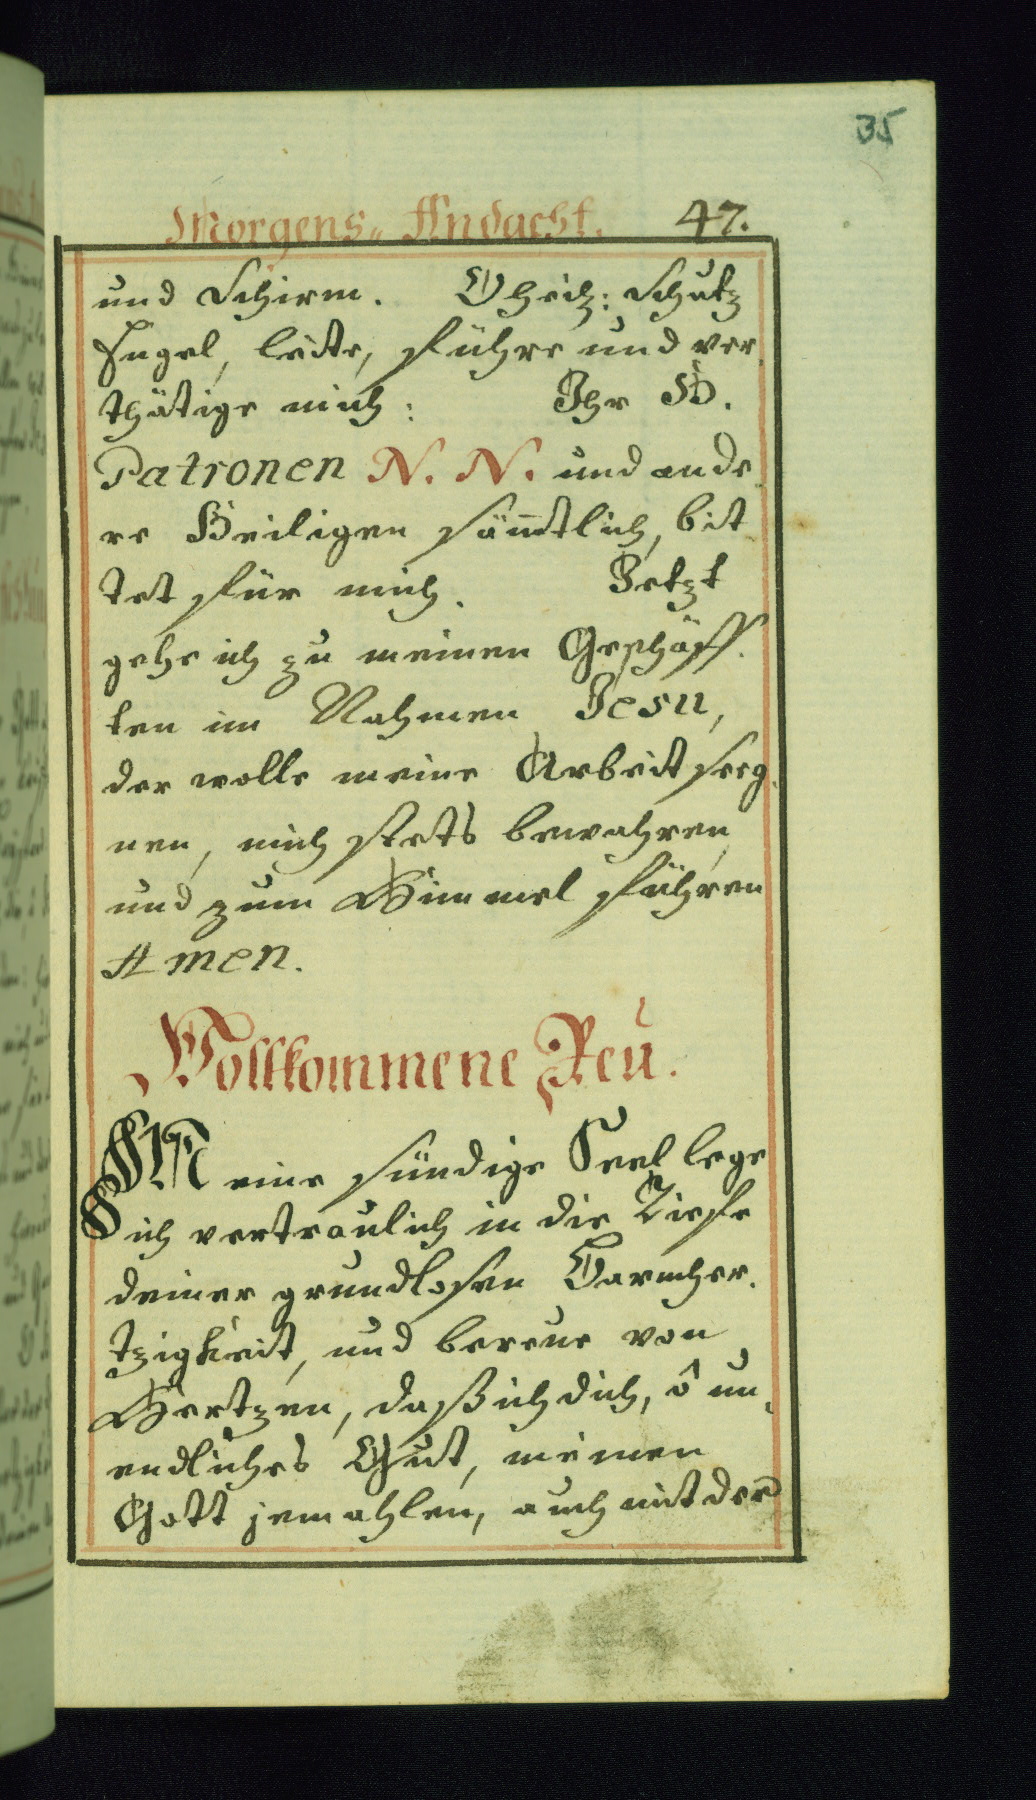 35
Morgens„ Andacht. 47.
und Schirm. O heil: Schutz
Engel, leite, führe und ver„
thätige mich: Ihr H.
Patronen N. N. und ande„
re Heiligen säm̄tlich, bit
tet für mich. Jetzt
gehe ich zu meinen Geschäff„
ten im Nahmen Jesu,
der wolle meine Arbeit seeg„
nen, mich stets bewahren,
und zum Himmel führen
Amen.
Vollkommene Reu.
Meine sündige Seel lege
ich vertraulich in die Tiefe
deiner grundlosen Barmher„
tzigkeit, und bereue von
Hertzen, daß ich dich, ô un„
endliches Gut, meinen
Gott jemahlen, auch mit der